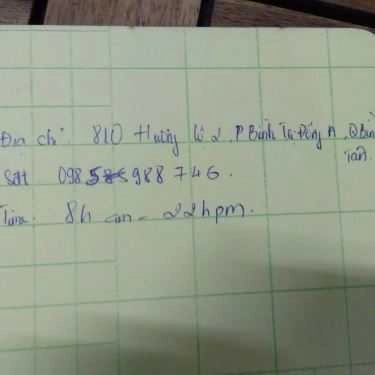 Địa chỉ: 810 Hương lộ 2, P Bình Trị Đông A, Q Bình
Tân.
Sđt 0985 988 746.
Time: 8h am - 22h pm.